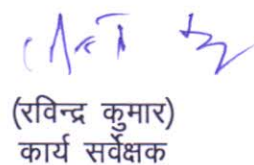 (रविन्द्र कुमार)
कार्य सर्वेक्षक